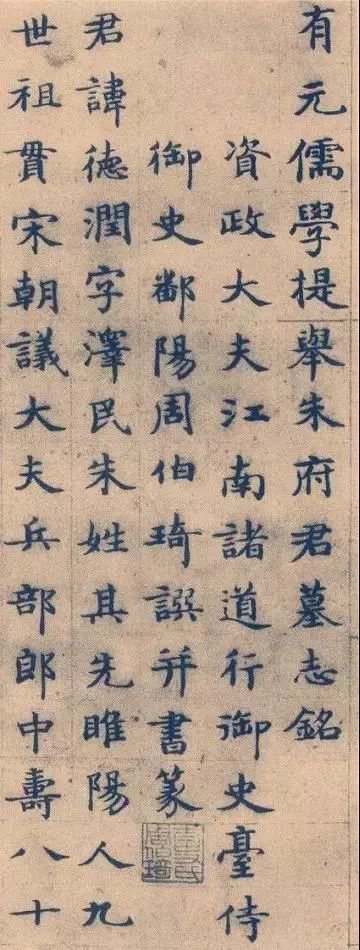 有元儒學提舉朱府君墓志銘
資政大夫江南諸道行御史臺侍
御史鄱陽周伯琦譔并書篆
君諱德潤字澤民朱姓其先睢陽人九
世祖貫宋朝議大夫兵部郎中壽八十